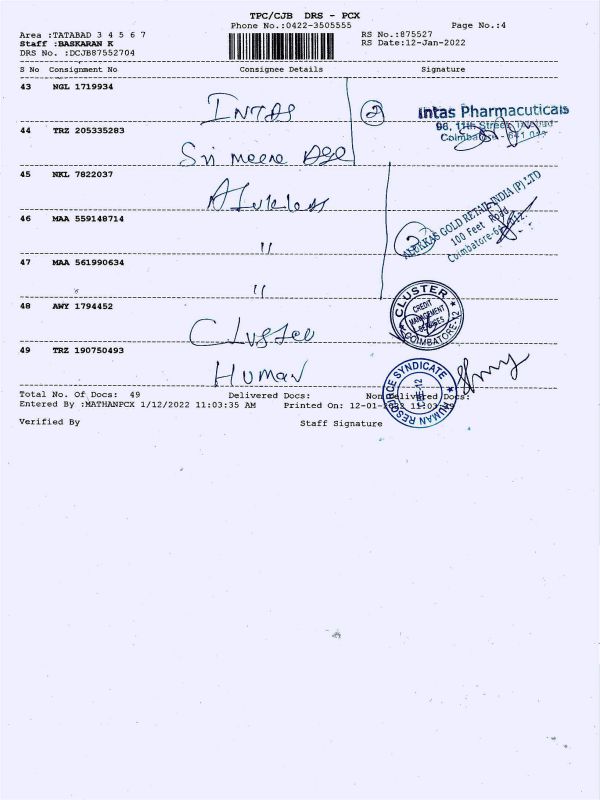 TPC/CJB DRS - PCX
Phone No.:0422-3505555
Page No.:4
Area :TATABAD 3 4 5 6 7
RS No.:875527
Staff :BASKARAN K
RS Date:12-Jan-2022
DRS No. :DCJB87552704
S No Consignment No Consignee Details Signature
43 NGL 1719934
INTAS
2
Intas Pharmacuticals
96, 11th Street,
Coimbatore - 641 012
44 TRZ 205335283
Sri meena
45 NKL 7822037
ALUKKAS GOLD RETAIL INDIA (P) LTD
100 Feet Road
Coimbatore-641012.
2
46 MAA 559148714
"
47 MAA 561990634
"
CLUSTER
CREDIT
MANAGEMENT
SERVICES
COIMBATORE-12
48 AWY 1794452
Cluster
49 TRZ 190750493
HUMAN
HUMAN RESOURCE SYNDICATE
Total No. Of Docs: 49 Delivered Docs: Non Delivered Docs:
Entered By :MATHANPCX 1/12/2022 11:03:35 AM Printed On: 12-01-2022 11:03:49
Verified By Staff Signature